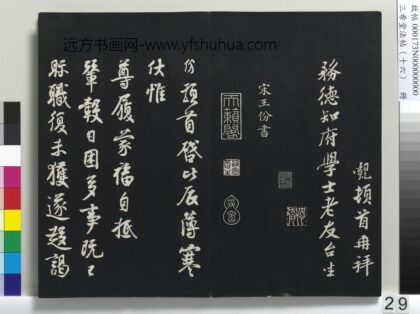 觀頓首再拜
務德知府學士老友台坐
宋王份書
天籟閣
份頓首啓比辰薄寒
伏惟
尊履蒙福自抵
輦轂日困多事既已
賑職復未獲遂趍謁
远方书画网-www.yfshuhua.com
故帖 000173N000000000
三希堂法帖（十六） 册
29